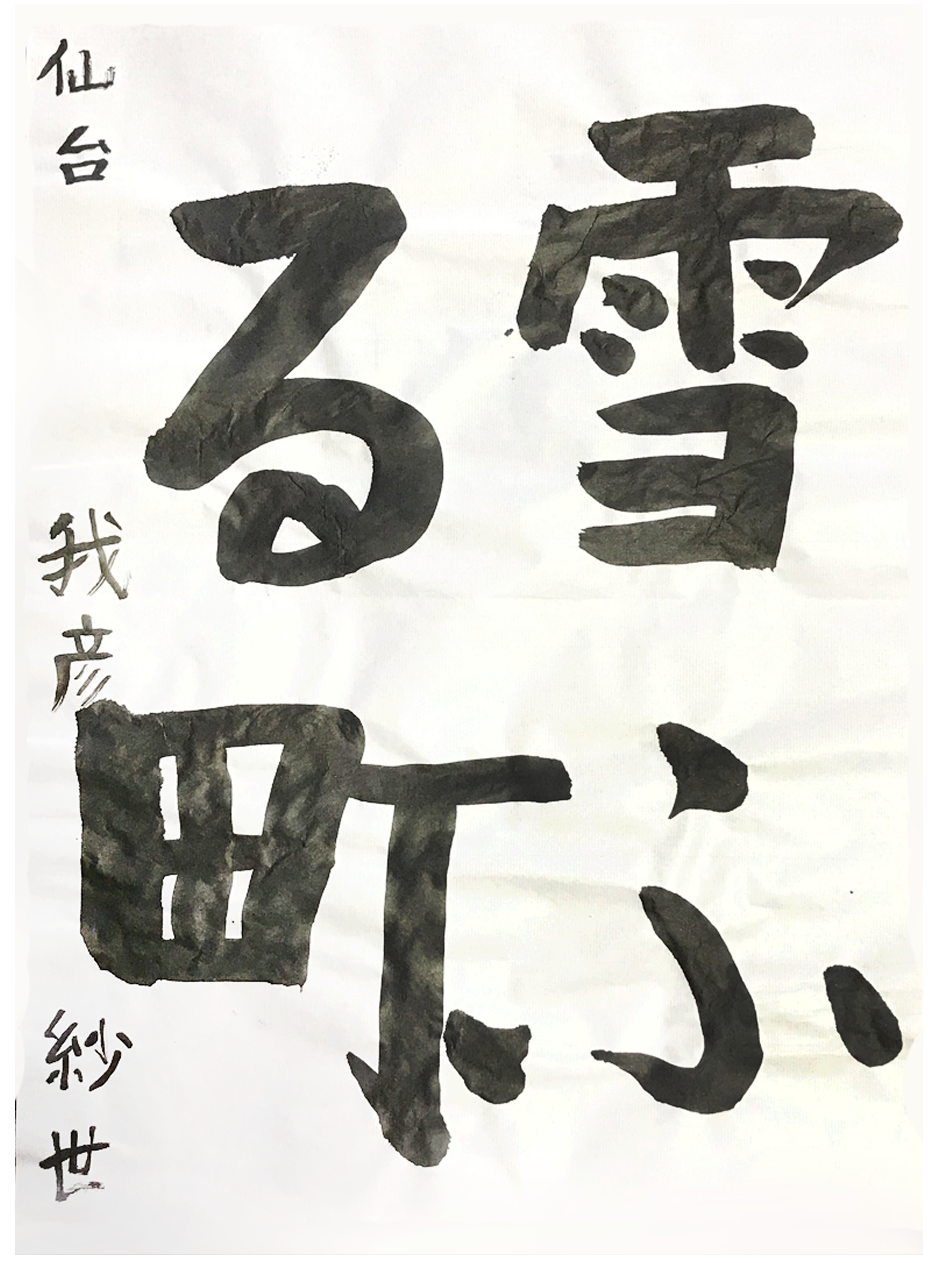 雪ふ
る町
仙台 我彦 紗世